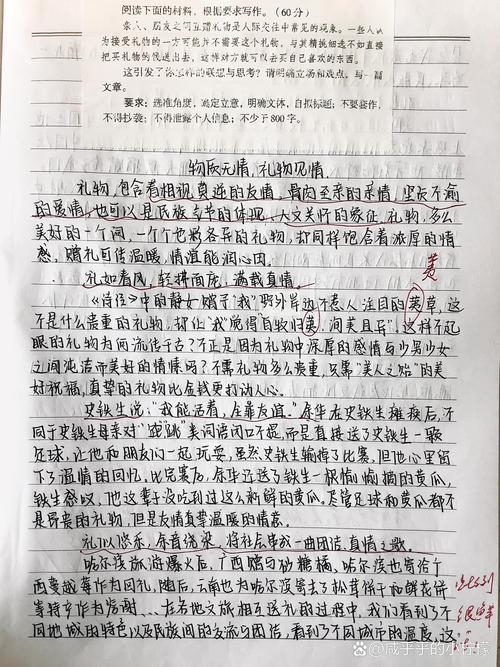 阅读下面的材料，根据要求写作。（60分）
亲人、朋友之间互赠礼物是人际交往中常见的现象。一些人认
为接受礼物的一方可能并不需要这个礼物，与其精挑细选不如直接
把买礼物的钱送出去，这样对方就可以去买自己喜欢的东西。
这引发了你怎样的联想与思考？请明确立场和观点，写一篇
文章。
要求：选准角度，确定立意，明确文体，自拟标题；不要套作，
不得抄袭；不得泄露个人信息；不少于800字。
物版无情，礼物见情
礼物，包含着相视莫逆的友情，骨肉至亲的亲情，坚贞不渝
的爱情，也可以是民族气节的体现，人文关怀的象征，礼物，多么
美好的一个词，一个个色彩各异的礼物，却同样饱含着浓厚的情
感，赠礼可传温暖，情谊能润心田。
礼如春风，轻拂面庞，满载真情。
《诗经》中的静女赠予“我”野外并不惹人注目的荑草，这
不是什么贵重的礼物，却让“我”觉得“自牧归荑，洵美且异”，这样不起
眼的礼物为何流传千古？不正是因为礼物中深厚的感情与少男少女
之间纯洁而美好的情愫吗？不需礼物多么贵重，只需“美人之贻”的美
好祝福，真挚的礼物比金钱更打动人心。
荑
史铁生说：“我能活着，全靠友谊。”余华在史铁生瘫痪后，不
同于史铁生母亲对“跑”“跳”类词语闭口不提，而是直接送了史铁生一颗
足球，让他和朋友们一起玩耍，虽然史铁生输掉了比赛，但他心里留
下了温情的回忆，比完赛后，余华还送了铁生一根偷摘的黄瓜，
铁生感叹，他这辈子没吃到过这么新鲜的黄瓜，尽管足球和黄瓜都不
是昂贵的礼物，但是友情真挚温暖的情意。
礼似悠乐，余音绕梁，将社会串成一曲团结，真情之歌。
哈尔滨旅游爆火后，广西赠与砂糖橘，哈尔滨也寄给广
西蔓越莓作为回礼，随后，云南也为哈尔滨寄去了松茸饼干和鲜花饼
等特产作为感谢……在各地文旅相互送礼的过程中，我们看到了不
同地域的特色以及民族间的交流与团结，看到了不同城市的温度，这
@咸乎乎的小柠檬